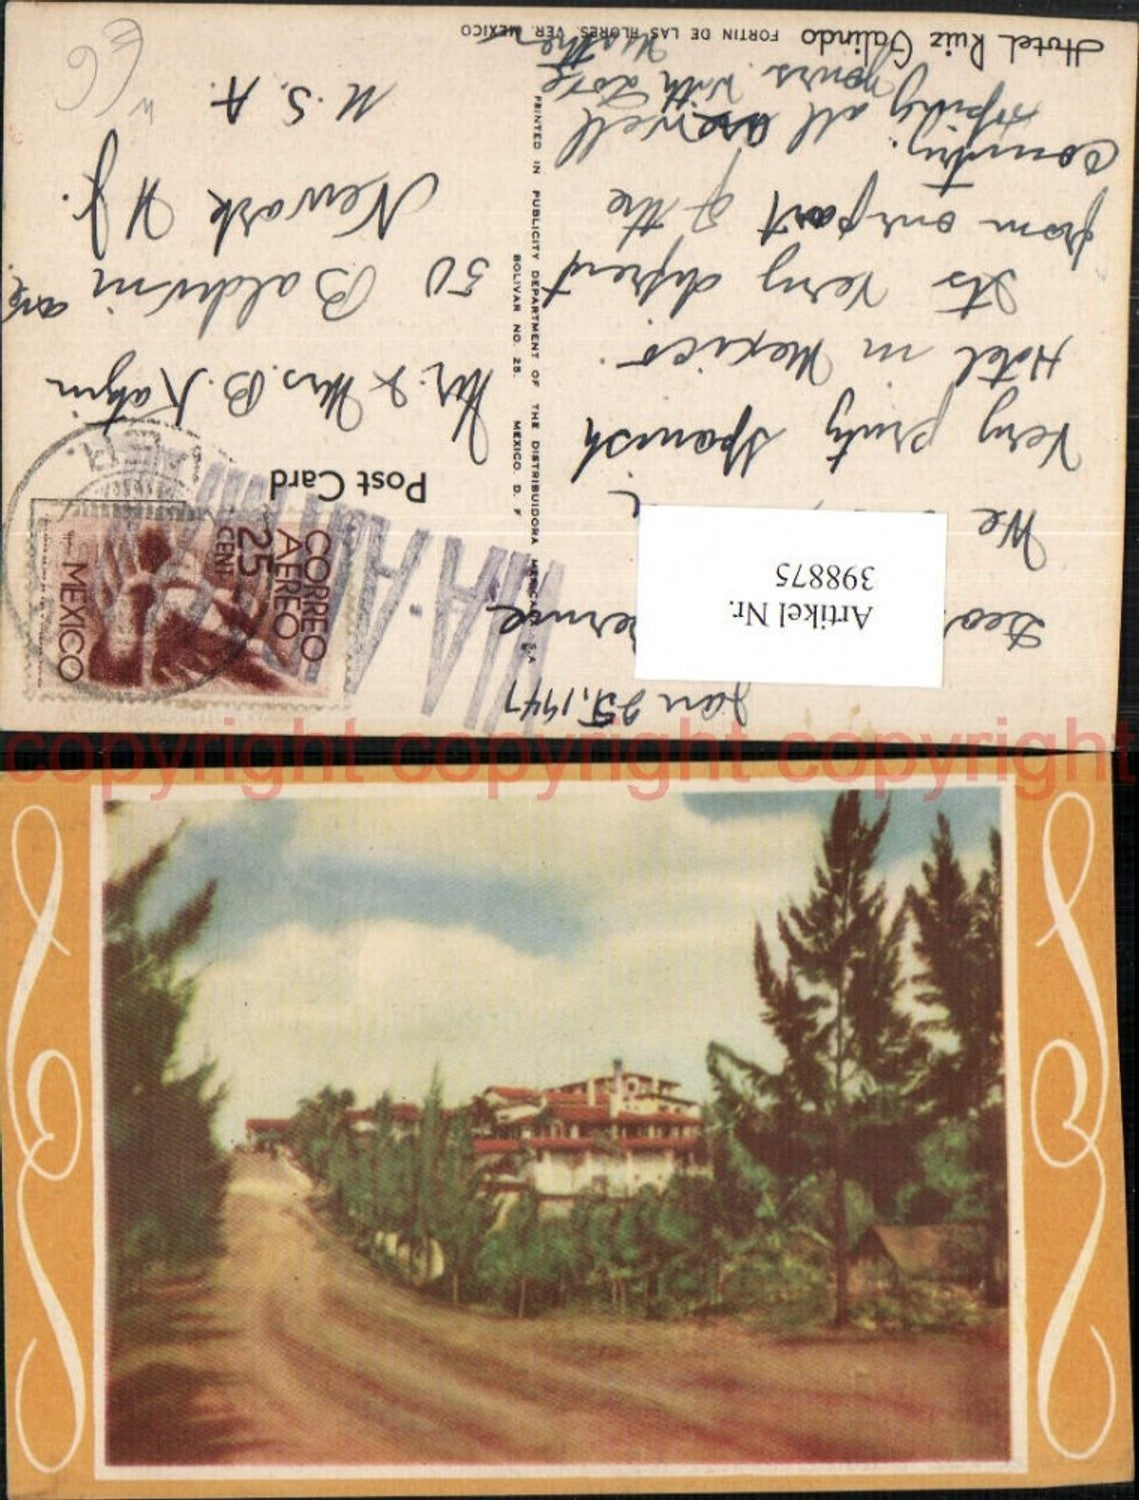 Hotel Ruiz Galindo FORTIN DE LAS FLORES, VER. MEXICO
Jan 25, 1947
We
Very prity Spanish
Hotel in Mexico.
Its Very difrent
from our part of the
country.
Hoping all are well
yours with Love
Mother
PRINTED IN PUBLICITY DEPARTMENT OF THE DISTRIBUIDORA MEXICANA, S.A.
BOLIVAR NO. 25. MEXICO, D. F.
Post Card
CORREO
AEREO
25
CENT
MEXICO
Mr. & Mrs. B. Katzin
50 Baldwin ave
Newark N.J.
U.S.A.
Artikel Nr.
398875
copyright copyright copyright copyright